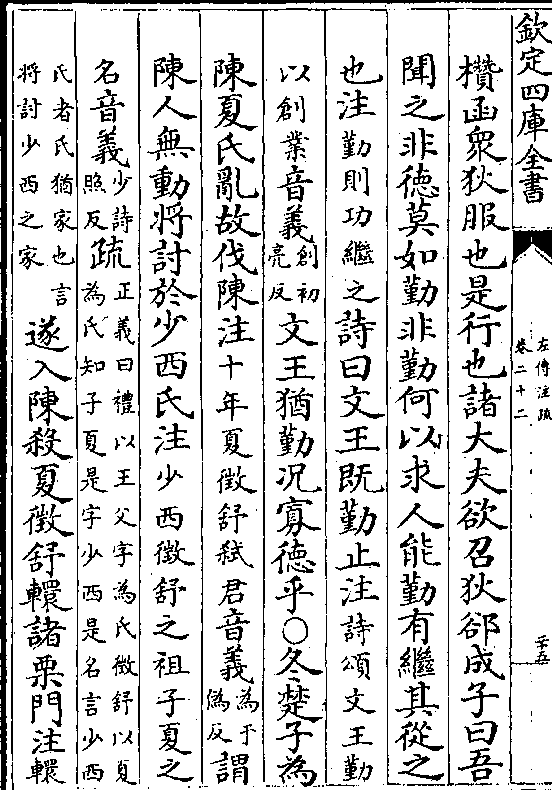 欽定四庫全書
左傳注疏
卷二十二
二十五
櫕函衆狄服也是行也諸大夫欲召狄郤成子曰吾
聞之非德莫如勤非勤何以求人能勤有繼其從之
也注勤則功繼之詩曰文王既勤止注詩頌文王勤
以創業音義創初亮反文王猶勤況寡德乎○冬楚子為
陳夏氏亂故伐陳注十年夏徵舒弑君音義為于偽反謂
陳人無動將討於少西氏注少西徵舒之祖子夏之
名音義少詩照反疏正義曰禮以王父字為氏徵舒以夏為氏知子夏是字少西是名言少西
氏者氏猶家也言將討少西之家遂入陳殺夏徵舒轘諸栗門注轘